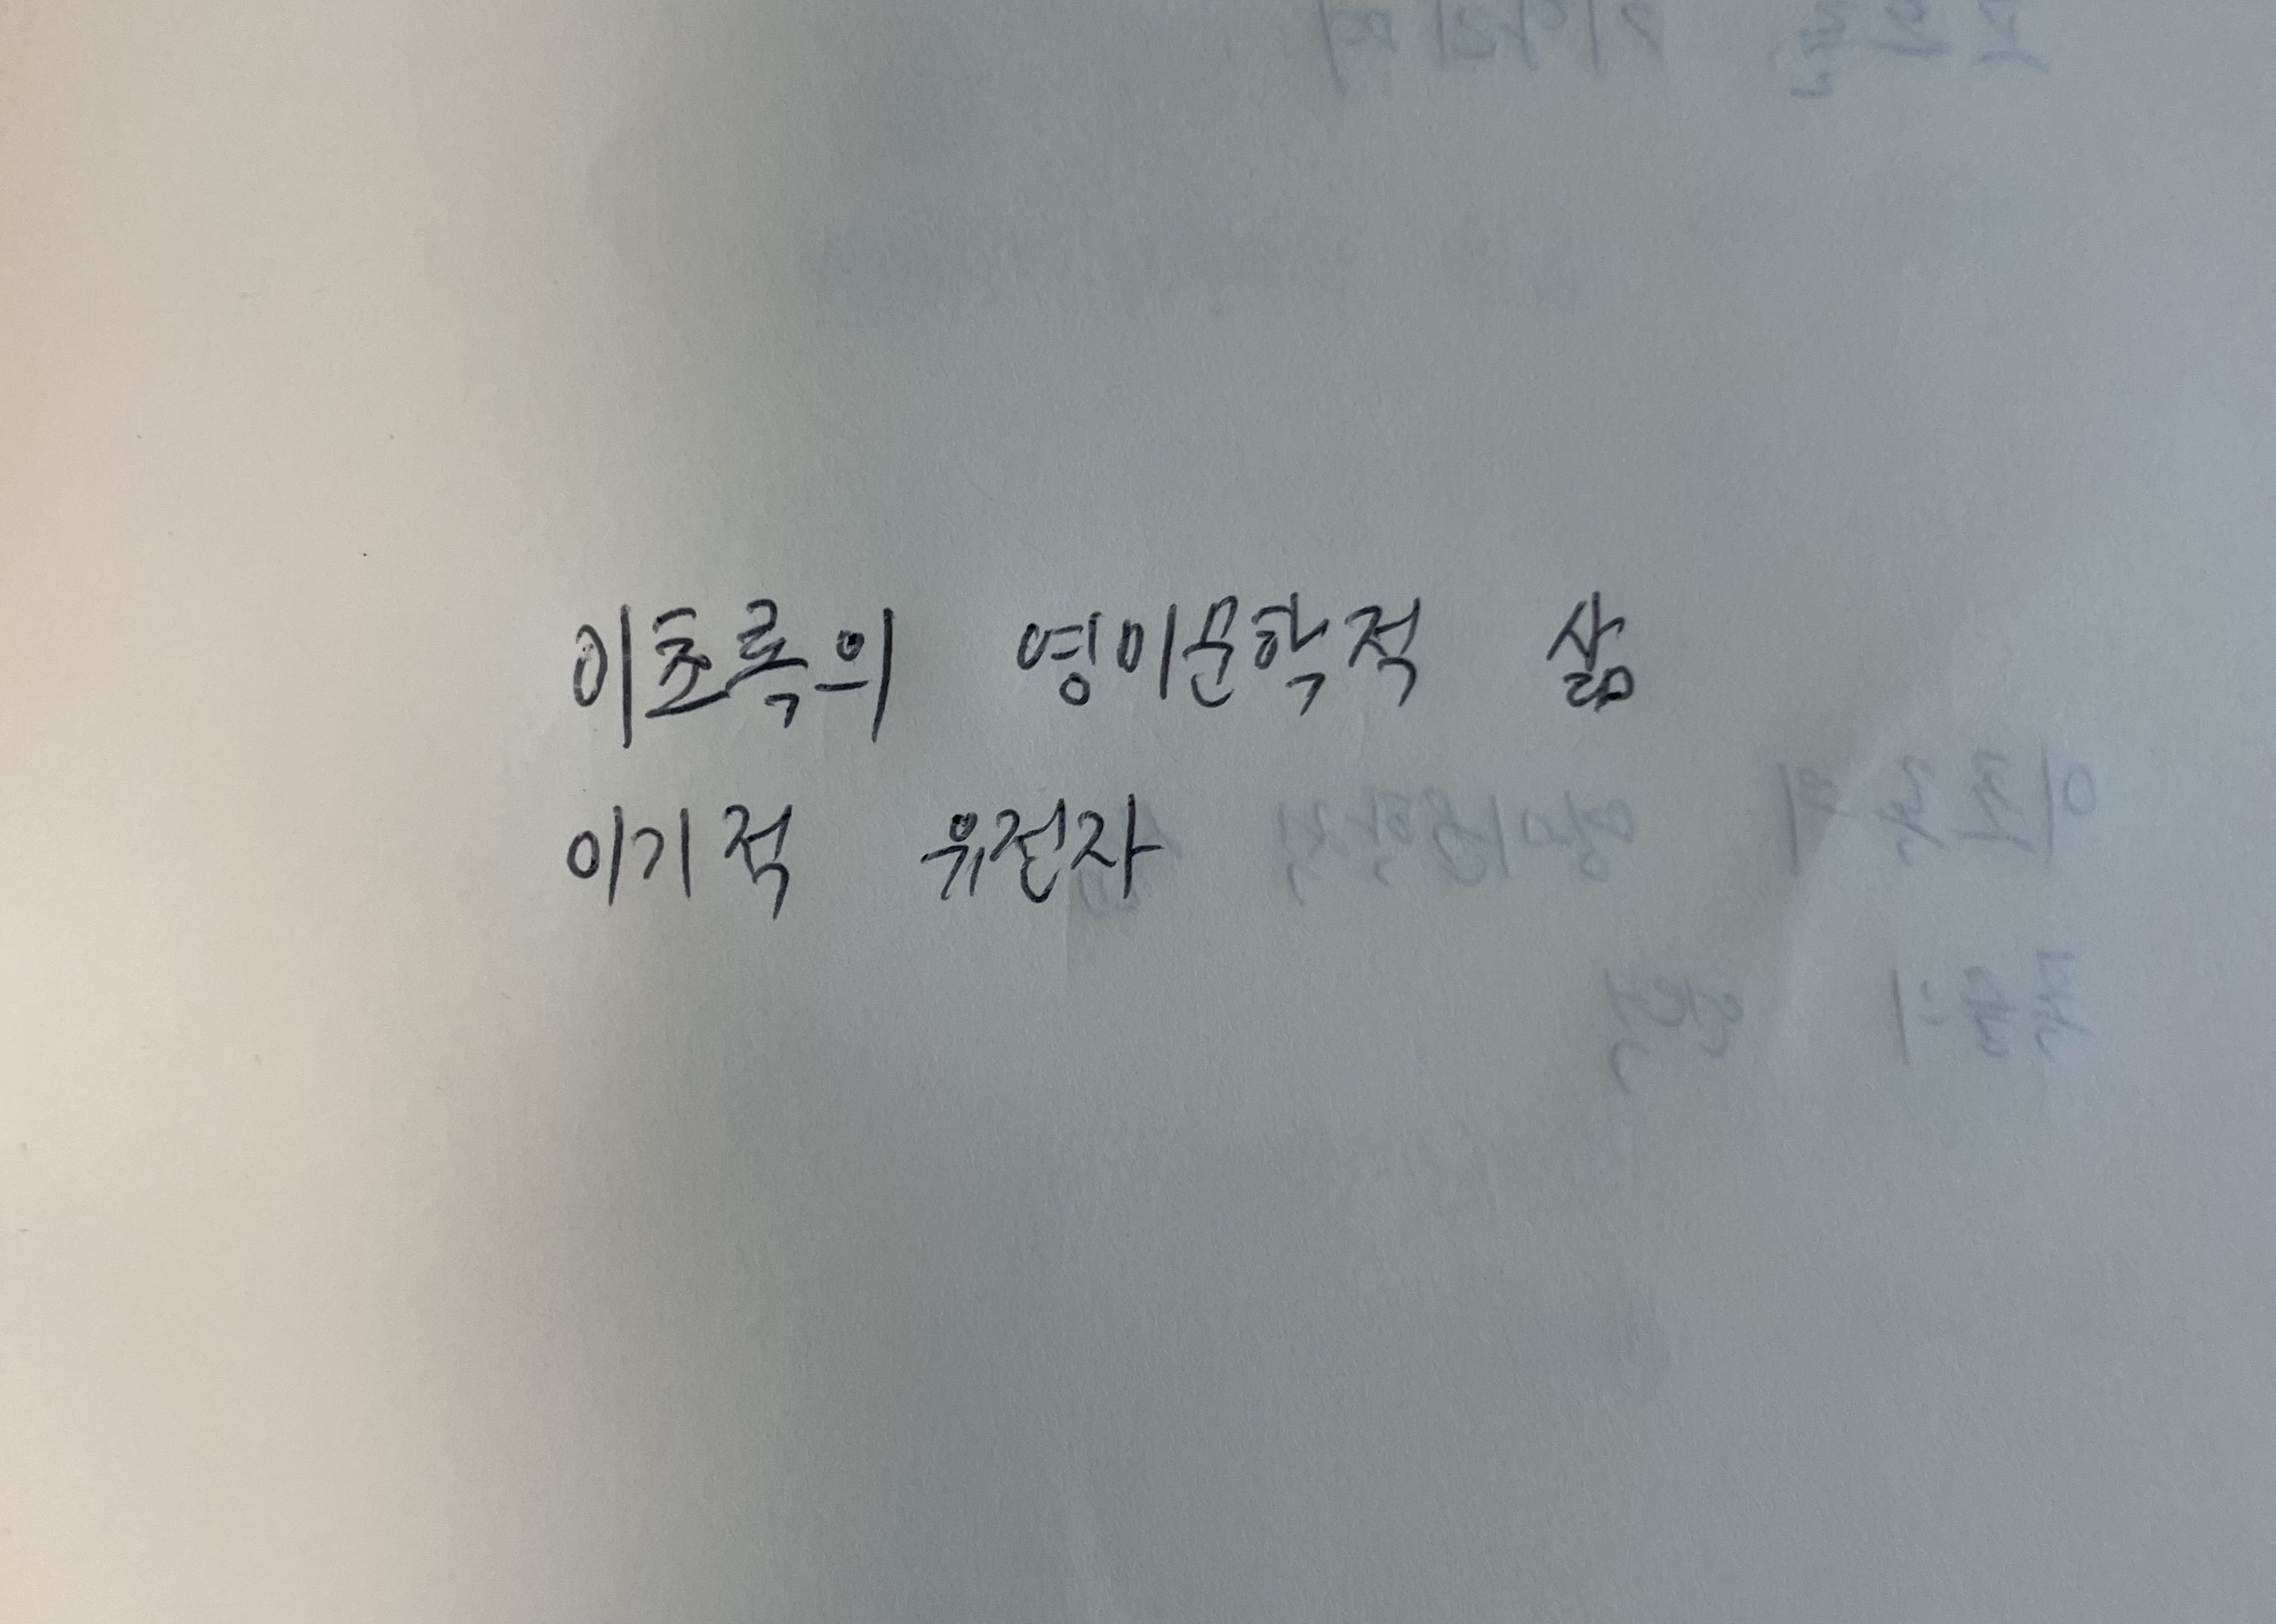 이초록의 영미문학적 삶
이기적 유전자